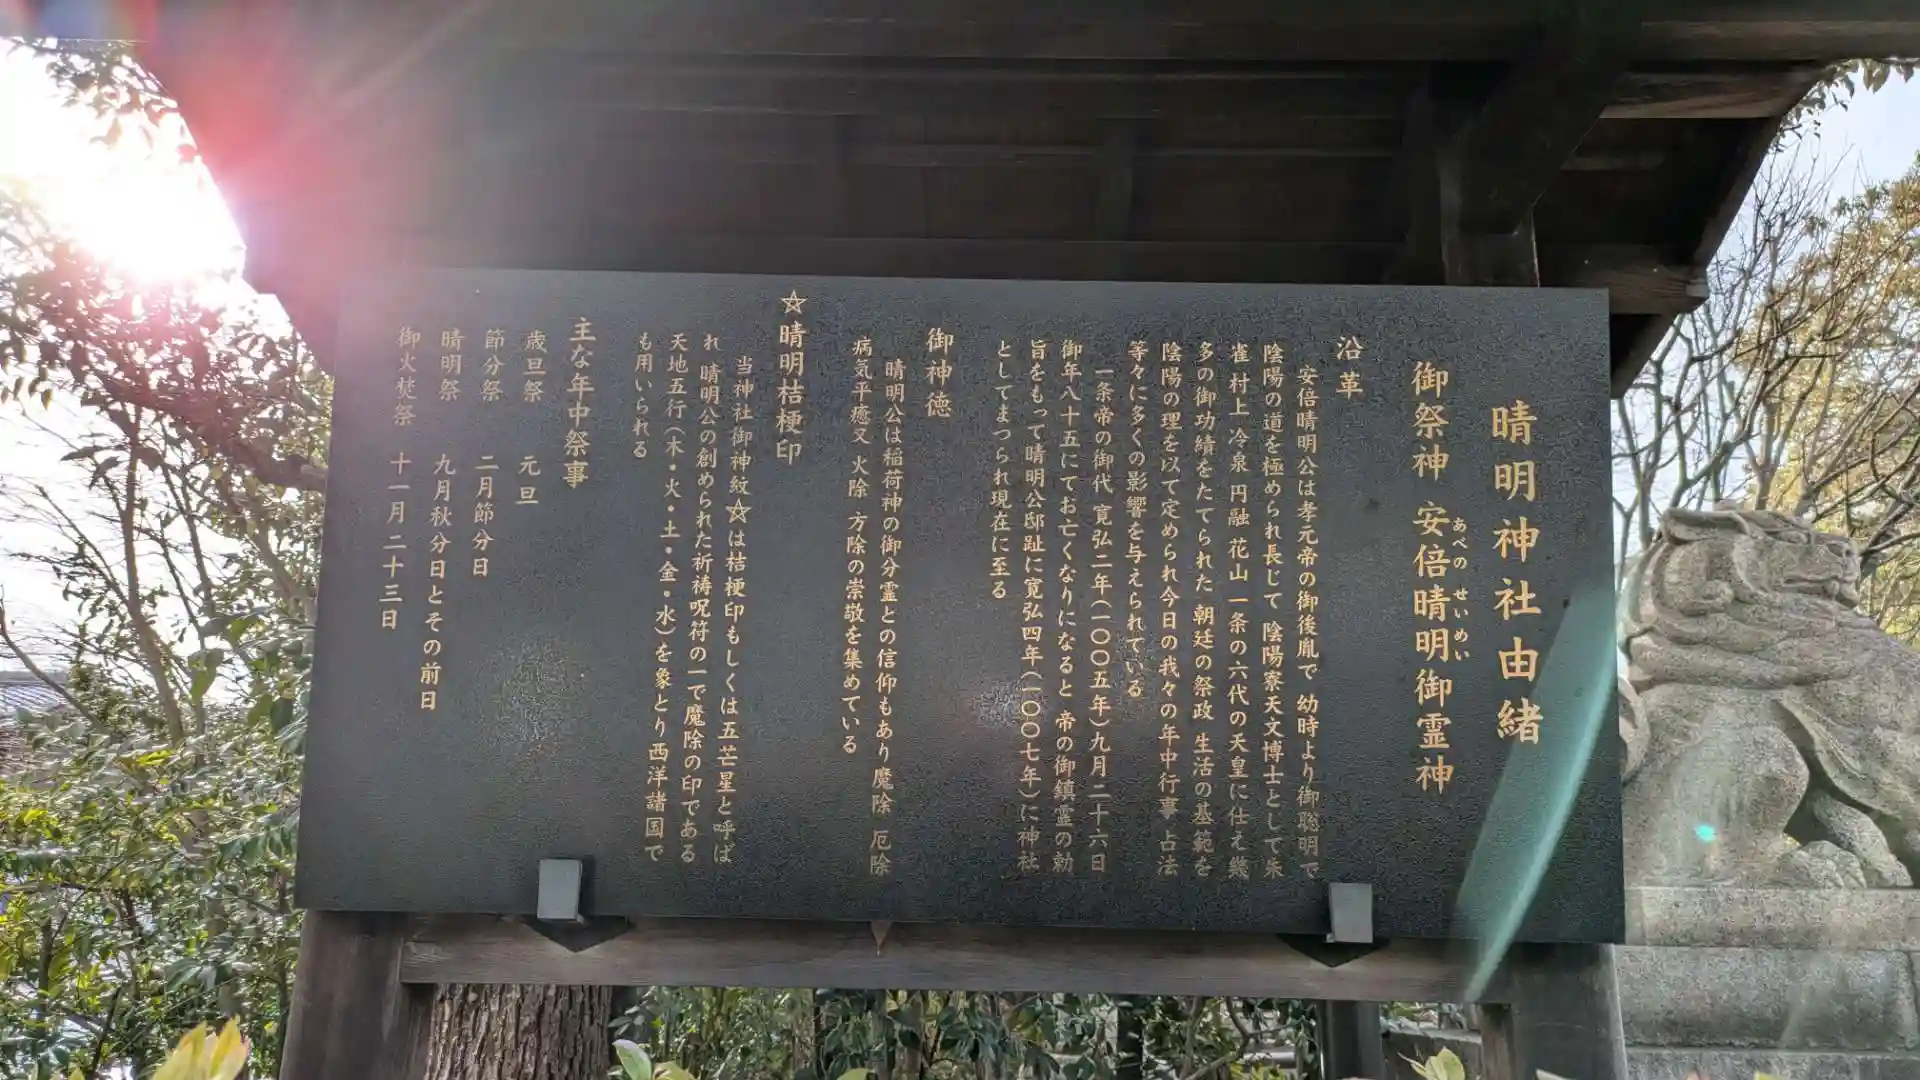 晴明神社由緒
御祭神 安倍晴明御霊神
あべの せいめい
沿革
安倍晴明公は孝元帝の御後胤で 幼時より御聡明で
陰陽の道を極められ長じて 陰陽寮天文博士として朱
雀 村上 冷泉 円融 花山 一条の六代の天皇に仕え幾
多の御功績をたてられた 朝廷の祭政 生活の基範を
陰陽の理を以て定められ今日の我々の年中行事 占法
等々に多くの影響を与えられている
一条帝の御代 寛弘二年(一〇〇五年)九月二十六日
御年八十五にてお亡くなりになると 帝の御鎮霊の勅
旨をもって晴明公邸趾に寛弘四年(一〇〇七年)に神社
としてまつられ現在に至る
御神徳
晴明公は稲荷神の御分霊との信仰もあり魔除 厄除
病気平癒又 火除 方除の崇敬を集めている
☆晴明桔梗印
当神社御神紋☆は桔梗印もしくは五芒星と呼ば
れ 晴明公の創められた祈祷呪符の一で魔除の印である
天地五行(木・火・土・金・水)を象とり西洋諸国で
も用いられる
主な年中祭事
歳旦祭 元旦
節分祭 二月節分日
晴明祭 九月秋分日とその前日
御火焚祭 十一月二十三日